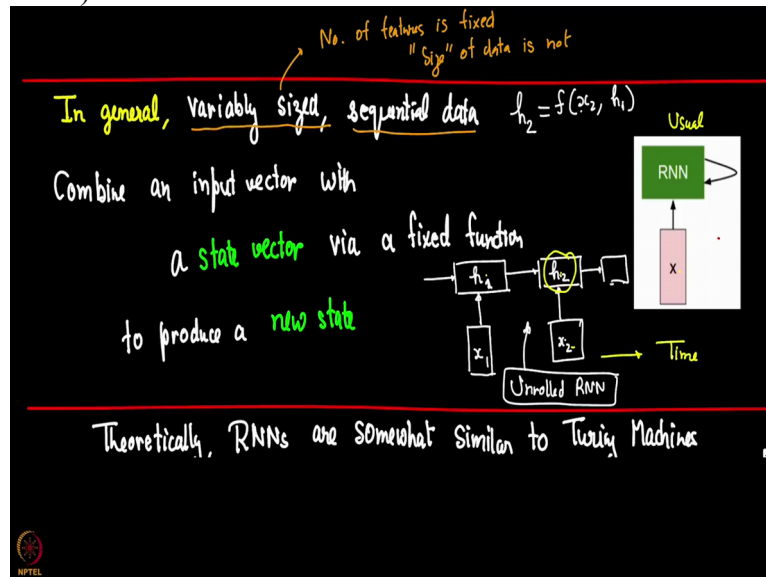 No. of features is fixed
"Size" of data is not
In general, variably sized, sequential data h₂ = f(x₂, h₁)
Usual
RNN
X
Combine an input vector with
a state vector via a fixed function
to produce a new state
h₁ h₂
x₁ x₂
Time
Unrolled RNN
Theoretically, RNNs are somewhat similar to Turing Machines
NPTEL